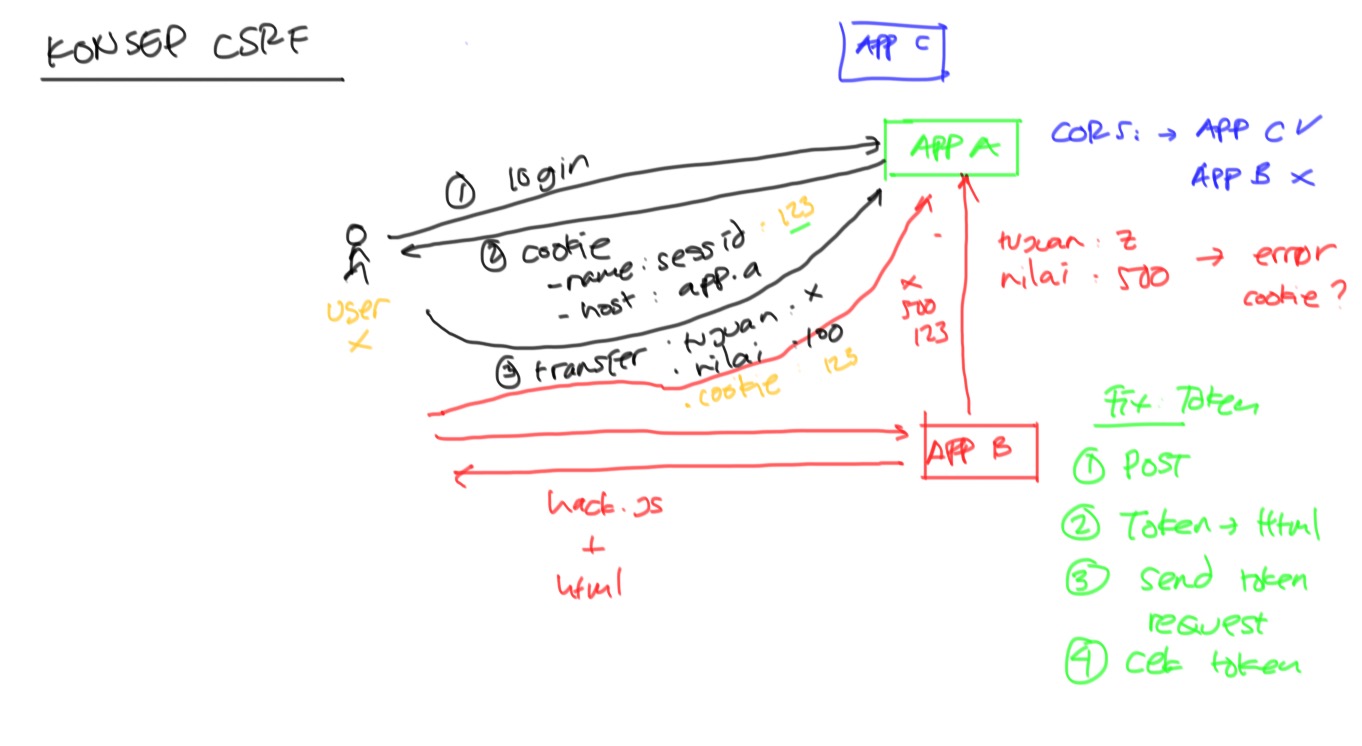 KONSEP CSRF
APP C
APP A
CORS: → APP C ✓
APP B x
① login
② cookie
- name: sessid : 123
- host : app.a
user
x
③ transfer : tujuan : x
. nilai : 100
. cookie : 123
x
500
123
tujuan : z
nilai : 500 → error
cookie ?
APP B
hack.js
+
html
Fix : Token
① POST
② Token → Html
③ send token
request
④ cek token